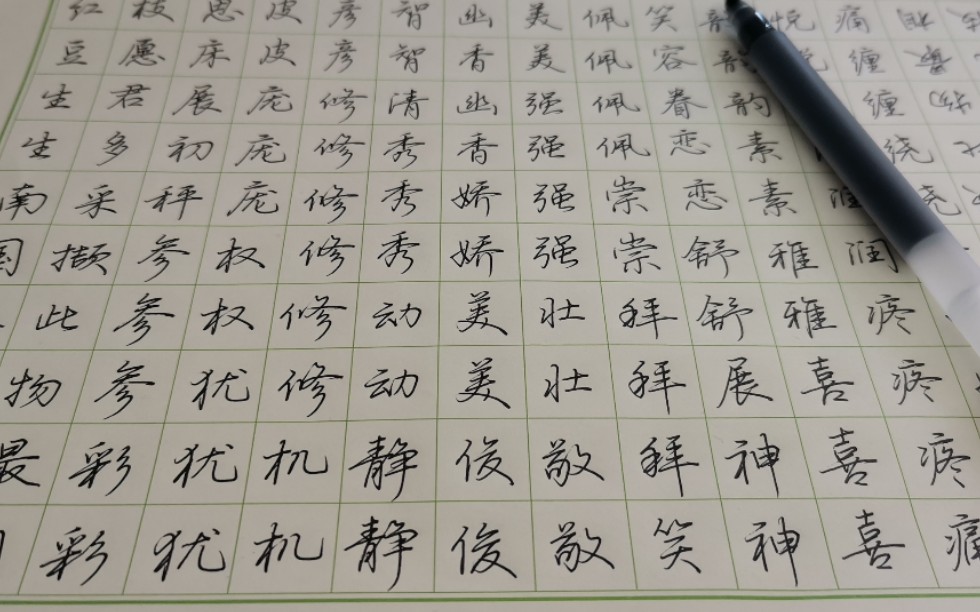 红枝思皮彦智幽美佩笑韵悦痛
豆愿床皮彦智香美佩容韵悦缠
生君展庞修清幽强佩眷韵缠
生多初庞修秀香强佩恋素绕
南采秤庞修秀娇强崇恋素润绕
国撷参权修秀娇强崇舒雅润
此参权修动美壮拜舒雅疼
物参犹修动美壮拜展喜疼
最彩犹机静俊敬拜神喜疼
彩犹机静俊敬笑神喜痛